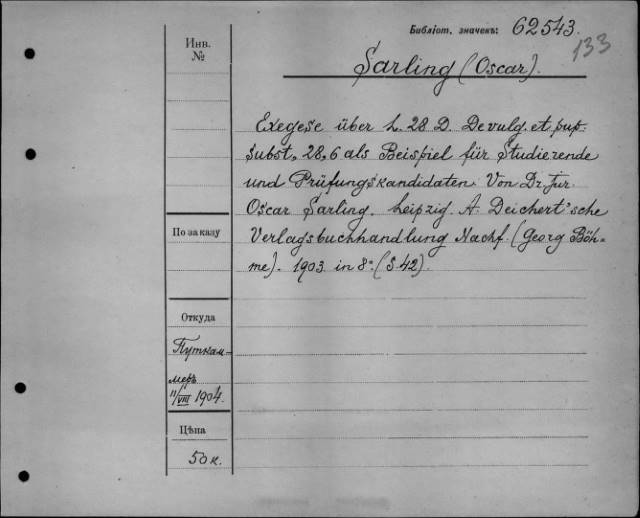 Библіот. значекъ: 62543.
133
Инв. №
Sarling (Oscar).
Exegese über L. 28 D. De vulg. et pup.
subst, 28, 6 als Beispiel für Studierende
und Prüfungskandidaten. Von Dr. jur.
Oscar Sarling. Leipzig. A. Deichert'sche
По заказу
Verlagsbuchhandlung Nachf. (Georg Böh-
me). 1903. in 8° (S. 42).
Откуда
Путкам-
меръ
11/VIII 1904.
Цѣна
50 к.